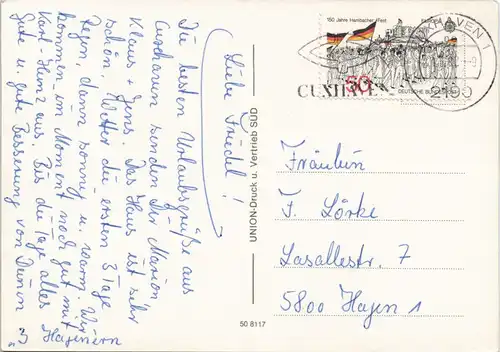 Liebe Friedel!
Die besten Urlaubsgrüße aus
Cuxhaven senden Dir Marion
Klaus + Jens. Das Haus ist sehr
schön, Wetter die ersten 3 Tage
Regen, dann sonnig u. warm. Wir
kommen im Moment noch gut mit
Karl-Heinz aus. Bis die Tage alles
Gute u. gute Besserung von Deinen
"3 Hagenern
UNION-Druck u. Vertrieb SÜD
50 8117
150 Jahre Hambacher Fest
50
DEUTSCHE BUNDESPOST
CUXHAVEN 1
CUXHAVEN
Fräulein
F. Lörke
Lasallestr. 7
5800 Hagen 1